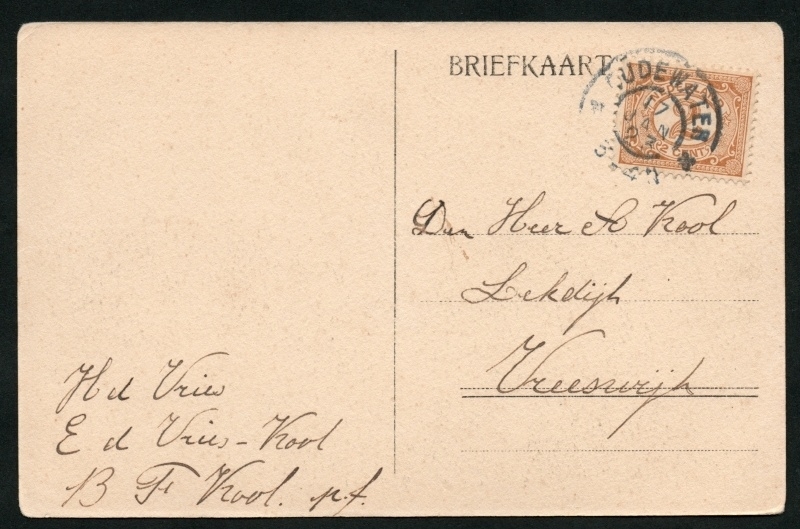 BRIEFKAART
OUDEWATER
17 JAN
2 CENT
Den Heer A Kool
Lekdijk
Vreeswijk
H d Vries
E d Vries-Kool
B F Kool. p.f.